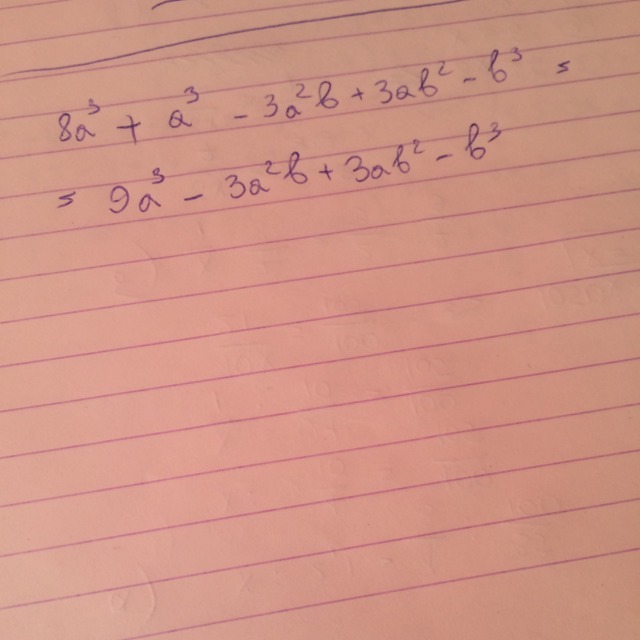 8a³ + a³ - 3a²b + 3ab² - b³ =
= 9a³ - 3a²b + 3ab² - b³